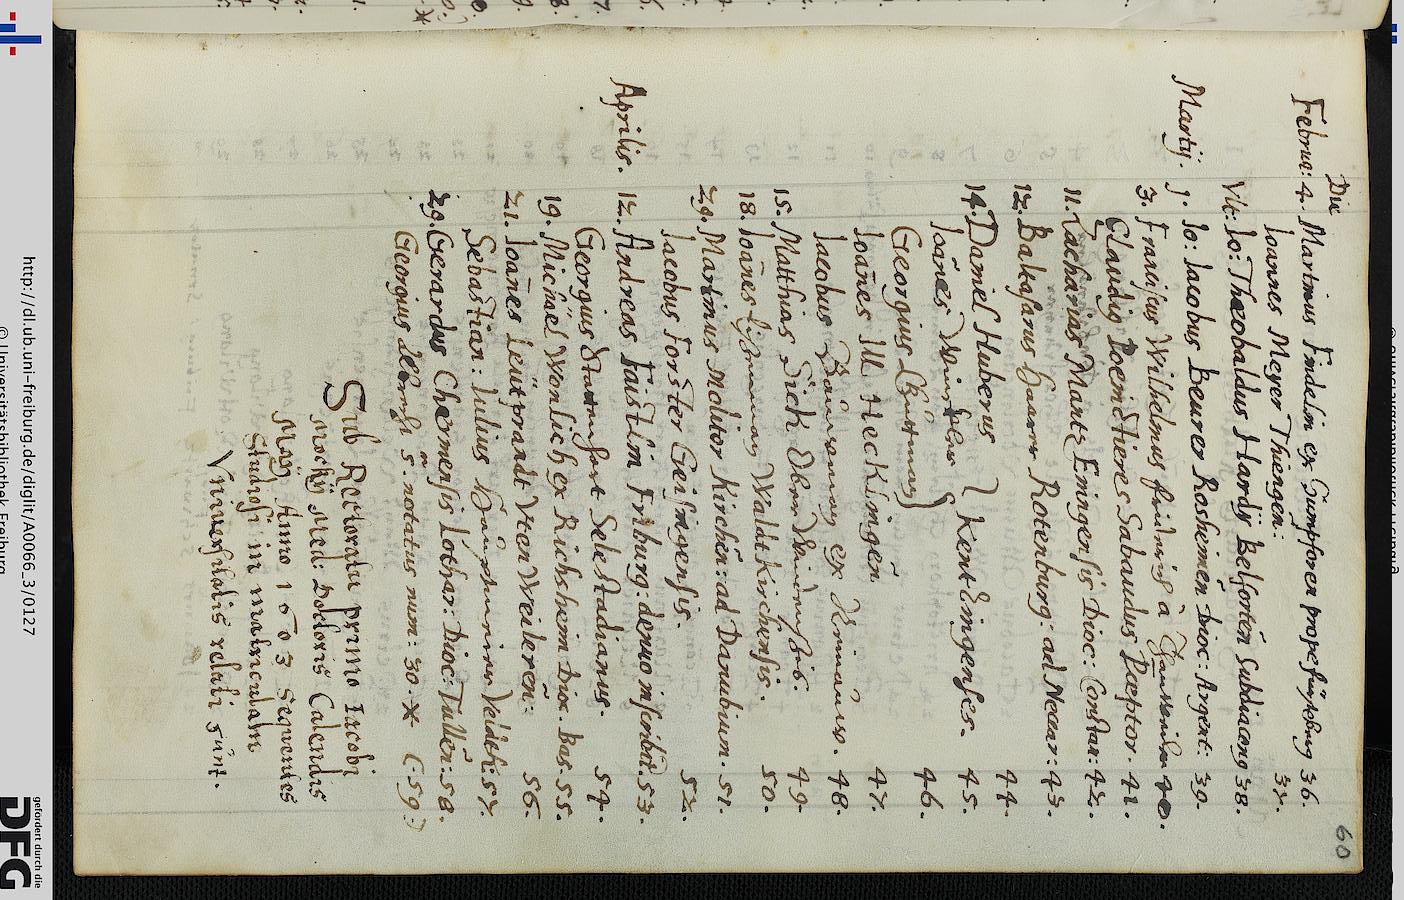 60
Die
Februa: 4. Martinus Findelin ex propè 36.
Ioannes Meyer Thiengen: 37.
Vlt: Io: Theobaldus Hardÿ Belforten Subdiacong 38.
Martij. 1. Io: Iacobus Beurer Rosheimen Dioc: Argent: 39.
3. Wilhelmus à 40.
Claudig Sabaudus Pœptor. 41.
11. Zacharias Mantz Eingensis Dioc: Constan: 42.
12. Rotenburg: ad Neccar: 43.
14. Daniel Huberus } Kentzingenses. 44.
Ioānes 45.
Georgius 46.
Ioānes Ill Hecklingen 47.
Iacobus ex 48.
15. Matthias Sick 49.
18. Ioānes Waldtkirchensis. 50.
29. Martinus Molitor Kirchēn: ad Danubium. 51.
Iacobus Forster Geisingensis. 52.
Aprilis. 12. Andreas Fästlin Friburg: denuo inscribit. 53.
Georgius Selestadianus. 54.
19. Michäel Wonlich ex Richsheim Diœ. Bas: 55.
21. Ioānes Leütprandt Vten Weilerēn: 56.
Sebastian: Iulius 57.
29. Gerardus Charmensis Lothar: Dioc: Tullēn: 58.
Georgius S. notatus num: 30. * (59.)
Sub Rectoratu primo Iacobi
Mockÿ Med: Doctoris Calendis
Maÿ Anno 1603 sequentes
Studiosi in matriculam
Vniversitatis relati sunt.
http://dl.ub.uni-freiburg.de/diglit/A0066_3/0127
© Universitätsbibliothek Freiburg
gefördert durch die
DFG